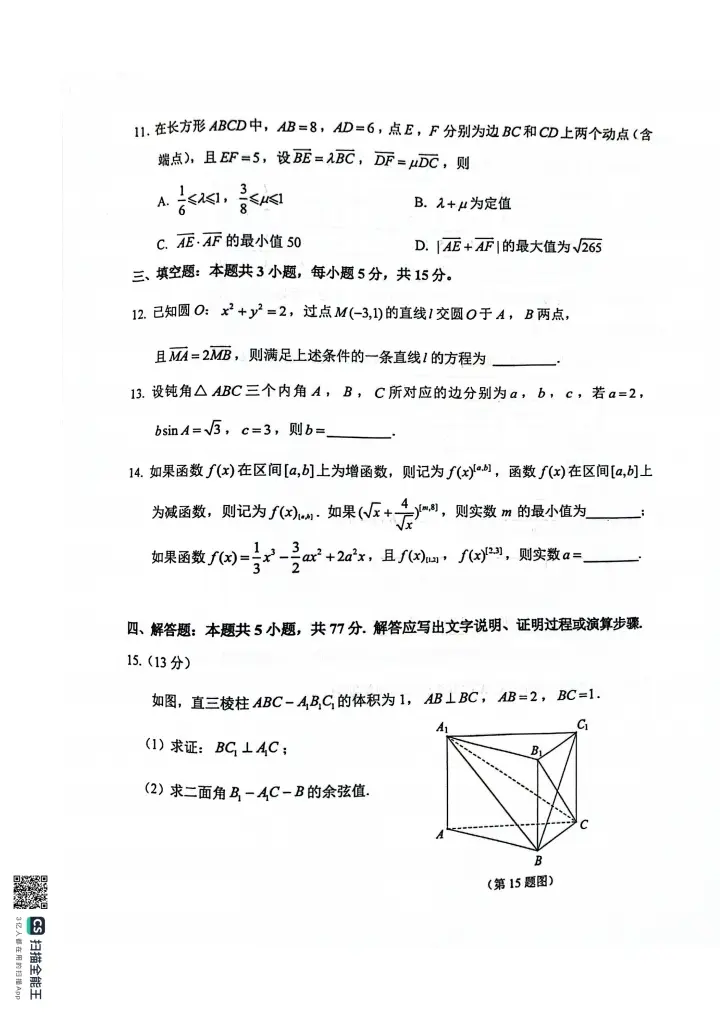 11. 在长方形 ABCD 中，AB=8，AD=6，点 E，F 分别为边 BC 和 CD 上两个动点（含
端点），且 EF=5，设 \overline{BE}=λ\overline{BC}，\overline{DF}=μ\overline{DC}，则
A. \frac{1}{6}≤λ≤1，\frac{3}{8}≤μ≤1
B. λ+μ 为定值
C. \overline{AE}·\overline{AF} 的最小值 50
D. |\overline{AE}+\overline{AF}| 的最大值为 \sqrt{265}
三、填空题：本题共 3 小题，每小题 5 分，共 15 分。
12. 已知圆 O：x²+y²=2，过点 M(-3,1) 的直线 l 交圆 O 于 A，B 两点，
且 \overline{MA}=2\overline{MB}，则满足上述条件的一条直线 l 的方程为 ______.
13. 设钝角△ABC 三个内角 A，B，C 所对应的边分别为 a，b，c，若 a=2，
b sin A=\sqrt{3}，c=3，则 b=______.
14. 如果函数 f(x) 在区间[a,b]上为增函数，则记为 f(x)^{[a,b]}，函数 f(x) 在区间[a,b]上
为减函数，则记为 f(x)_{[a,b]}. 如果 (\sqrt{x}+\frac{4}{\sqrt{x}})^{[m,8]}，则实数 m 的最小值为______；
如果函数 f(x)=\frac{1}{3}x³-\frac{3}{2}ax²+2a²x，且 f(x)_{[1,2]}，f(x)^{[2,3]}，则实数 a=______.
四、解答题：本题共 5 小题，共 77 分. 解答应写出文字说明、证明过程或演算步骤.
15.（13 分）
如图，直三棱柱 ABC-A₁B₁C₁ 的体积为 1，AB⊥BC，AB=2，BC=1.
（1）求证：BC₁⊥A₁C；
（2）求二面角 B₁-A₁C-B 的余弦值.
A₁
C₁
B₁
A
C
B
（第 15 题图）
CS 扫描全能王
3亿人都在用的扫描App